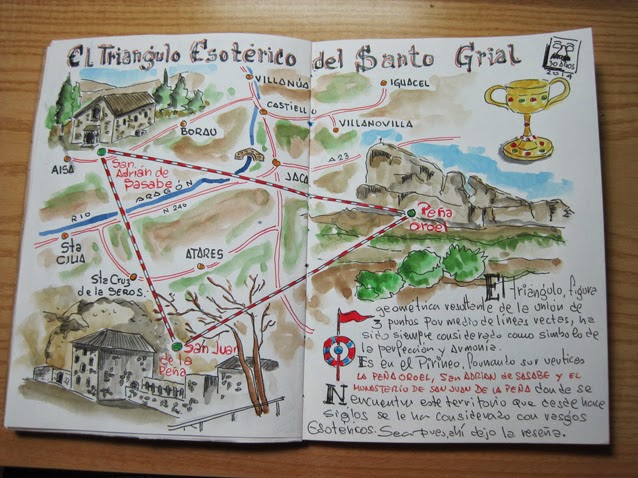 El Triangulo Esotérico del Santo Grial
50 Años
2014
VILLANÚA
IGUACEL
CASTIELLO
BORAU
VILLANOVILLA
AISA
San Adrián de Sasabe
A 23
JACA
RIO ARAGÓN
N 240
Peña Oroel
Sta CILIA
ATARES
Sta Cruz de la SEROS.
San Juan de la Peña
El triangulo, figura
geométrica resultante de la unión de
3 puntos por medio de líneas rectas, ha
sido siempre considerado como símbolo de
la perfección y Armonía.
Es en el Pirineo, formando sus vertices
LA PEÑA OROEL, San ADRIAN de SASABE y EL
MONASTERIO DE SAN JUAN DE LA PEÑA donde se
encuentra este territorio que desde hace
siglos se le ha considerado con rasgos
Esotéricos. Sea pues, ahí dejo la reseña.